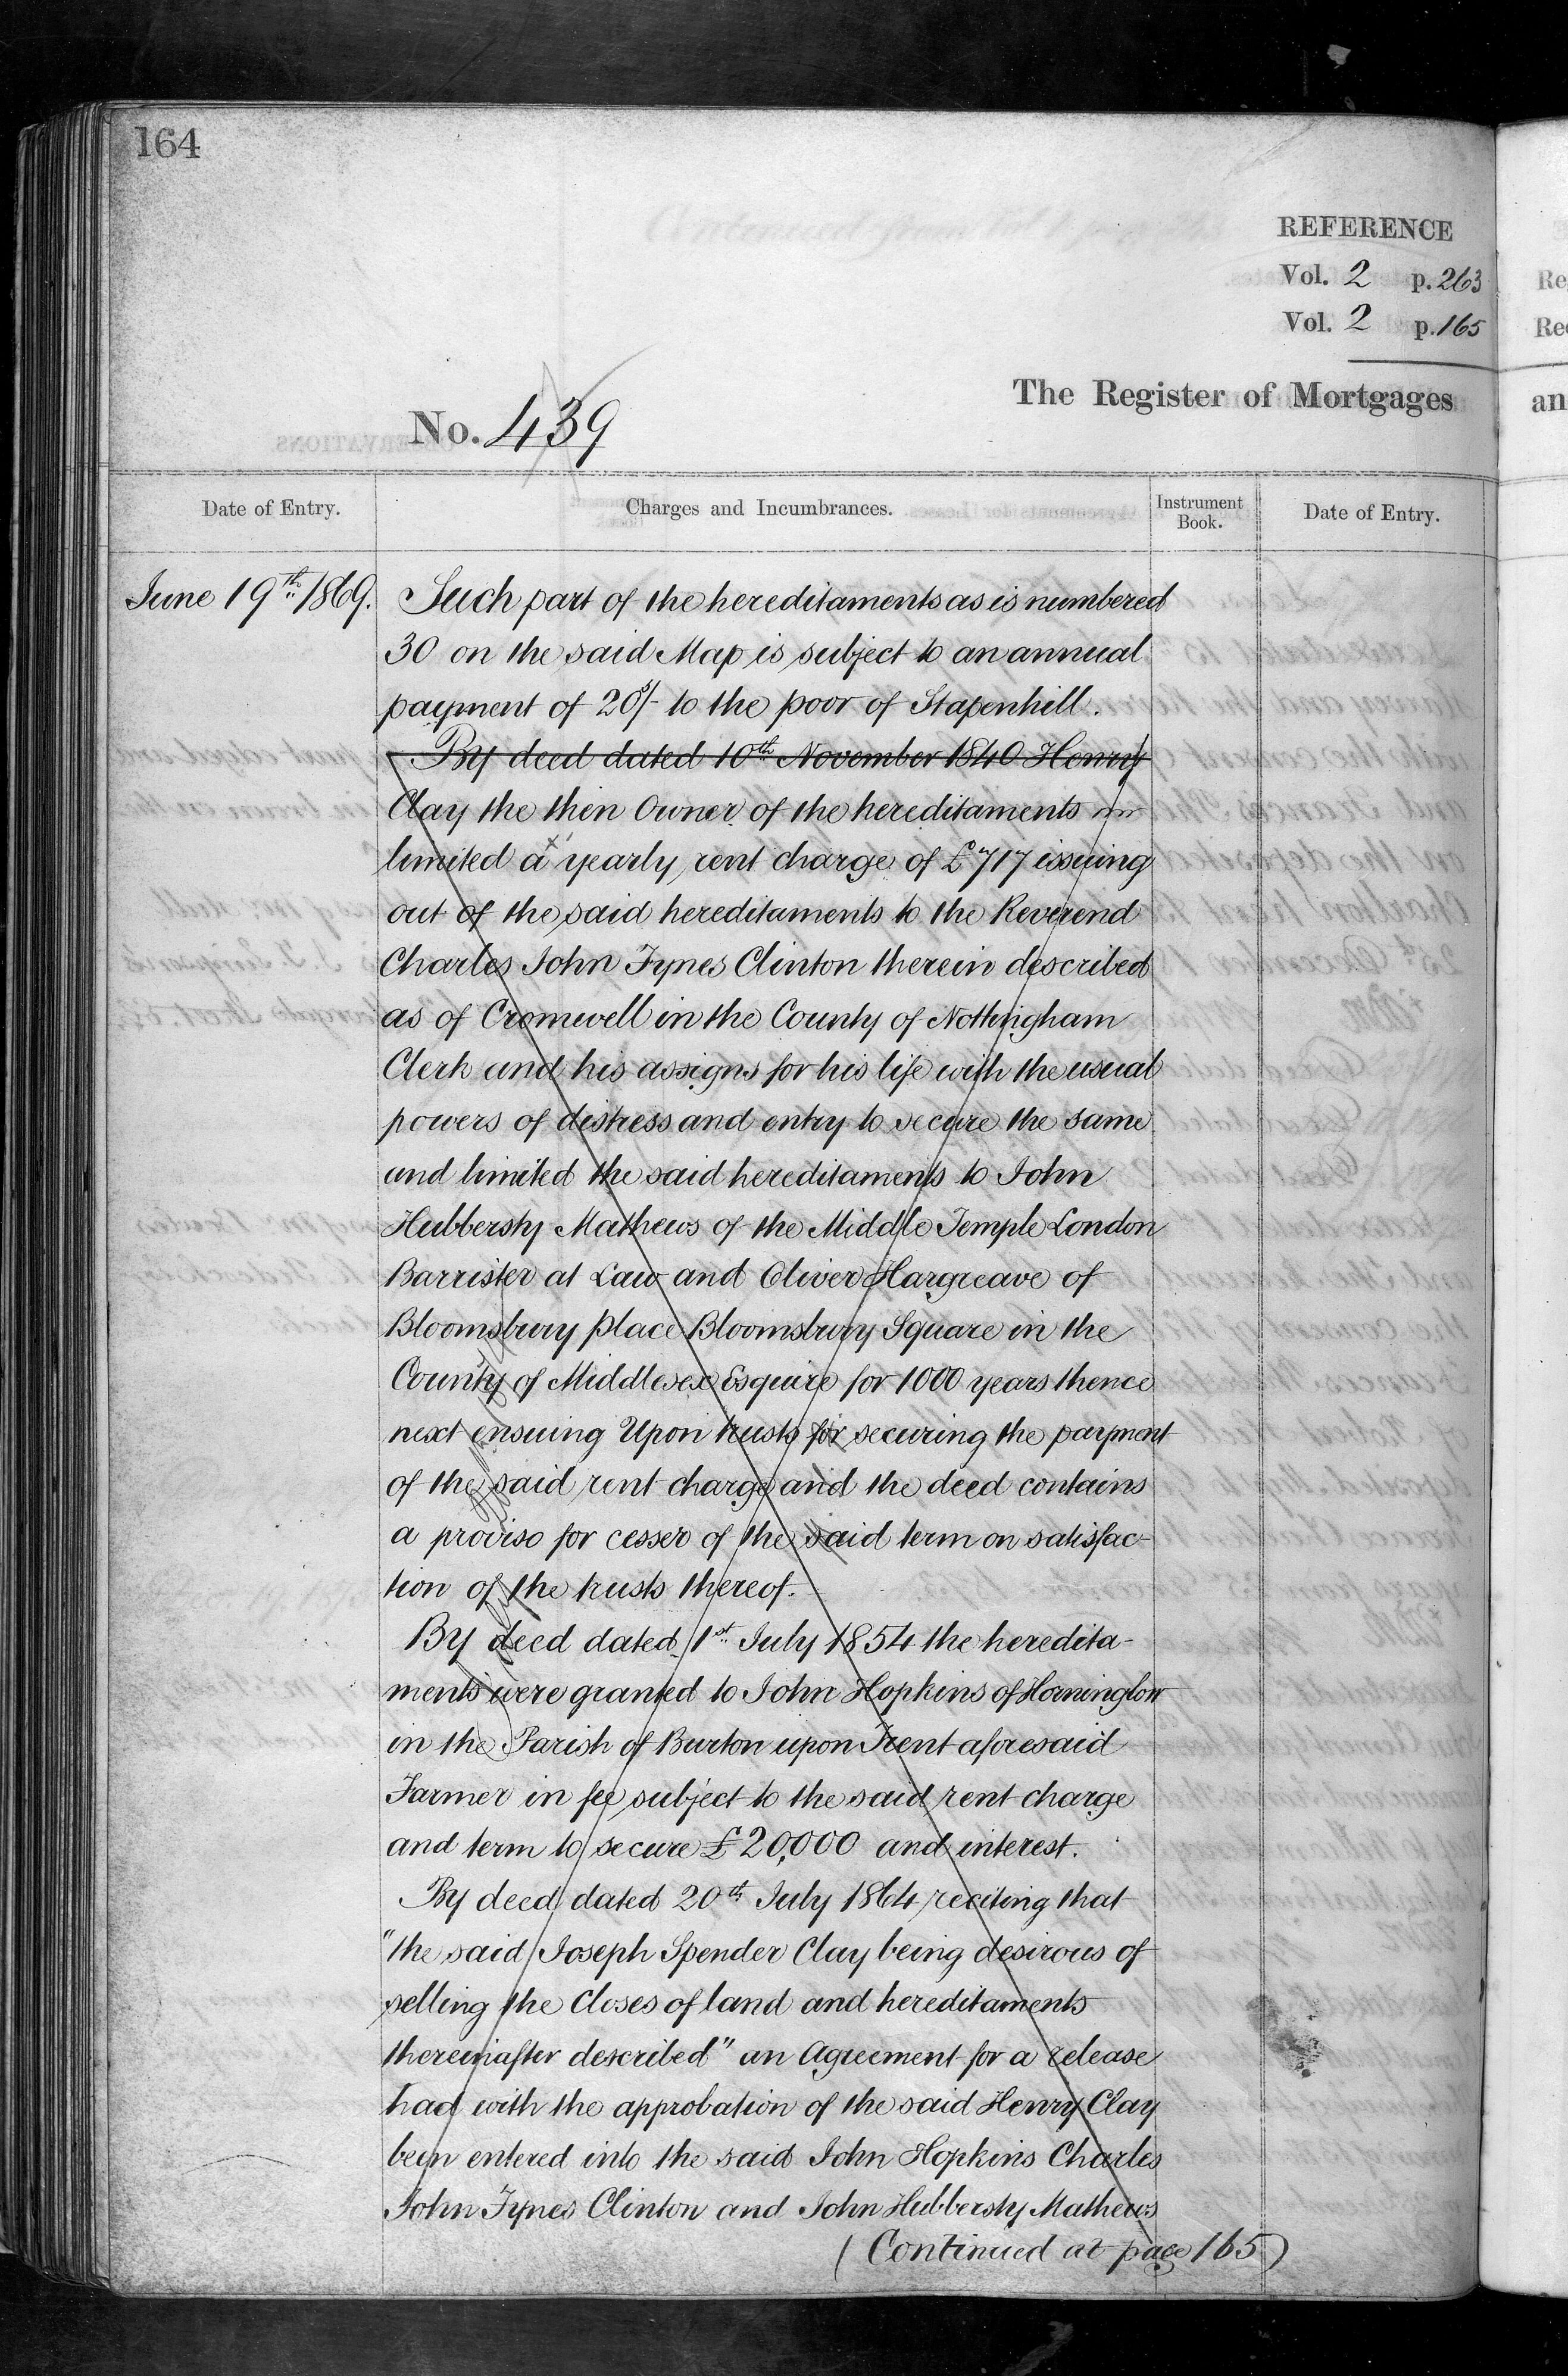 164
REFERENCE
Vol. 2 p. 263
Vol. 2 p. 165
The Register of Mortgages
No. 439
Date of Entry. Charges and Incumbrances. Instrument Book. Date of Entry.
June 19th 1869. Such part of the hereditaments as is numbered
30 on the said Map is subject to an annual
payment of 20s/- to the poor of Stapenhill.
By deed dated 10th November 1840 Henry
Clay the then Owner of the hereditaments
limited a yearly rent charge of £717 issuing
out of the said hereditaments to the Reverend
Charles John Fynes Clinton therein described
as of Cromwell in the County of Nottingham
Clerk and his assigns for his life with the usual
powers of distress and entry to secure the same
and limited the said hereditaments to John
Hubbersty Mathews of the Middle Temple London
Barrister at Law and Oliver Hargreave of
Bloomsbury place Bloomsbury Square in the
County of Middlesex Esquire for 1000 years thence
next ensuing Upon trusts for securing the payment
of the said rent charge and the deed contains
a proviso for cesser of the said term on satisfac-
tion of the trusts thereof.
By deed dated 1st July 1854 the heredita-
ments were granted to John Hopkins of Horninglow
in the Parish of Burton upon Trent aforesaid
Farmer in fee subject to the said rent charge
and term to secure £20,000 and interest.
By deed dated 20th July 1864 reciting that
"the said Joseph Spender Clay being desirous of
selling the Closes of land and hereditaments
thereinafter described" an Agreement for a release
had with the approbation of the said Henry Clay
been entered into the said John Hopkins Charles
John Fynes Clinton and John Hubbersty Mathews
(Continued at page 165)